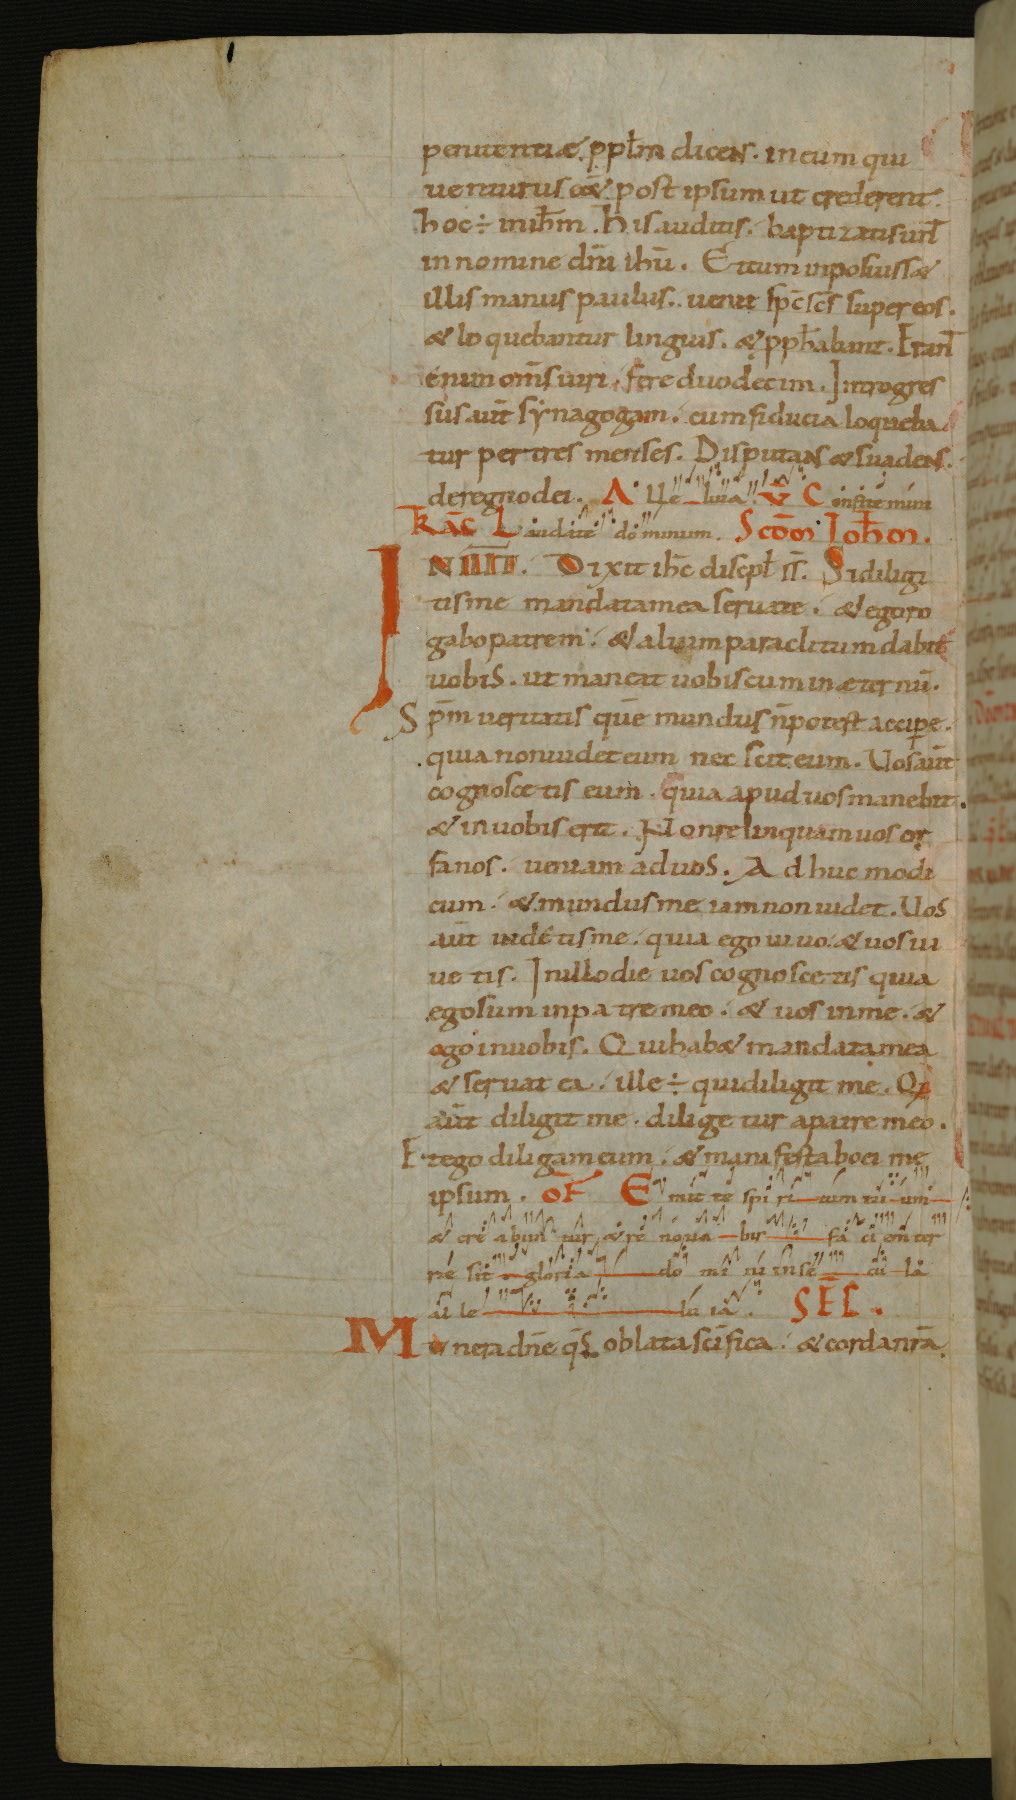 penitentiæ ppl̄m dicens. in eum qui
uenturus eēt post ipsum ut crederent.
hoc ÷ in ih̄m. His auditis. baptizati sun̄t
in nomine dn̄i ihū. Et cum inposuiss&
illis manus paulus. uenit sp̄c sc̄s super eos.
& loquebantur linguis. & pph̄abant. Eran̄t
enim om̄s uiri fere duodecim. Introgres
sus aut̄ synagogam. cum fiducia loqueba
tur per tres menses. Disputans & suadens.
de regno dei. Alleluia. V̄ Confitemini
TRAC̄ Laudate dominum. Sc̄dm Ioh̄em.
IN ILL̄. Dixit ih̄c discipl̄ s̄s. Si diligi
tis me mandata mea seruate. & ego ro
gabo patrem. & alium paraclitum dabit
uobis. ut maneat uobiscum in æternū.
Sp̄m ueritatis quē mundus n̄ potest accipe.
quia non uidet eum nec scit eum. Uos aūt
cognoscetis eum. quia apud uos manebit.
& in uobis erit. Non relinquam uos or
fanos. ueniam ad uos. Adhuc modi
cum. & mundus me iam non uidet. Uos
aūt uidetis me. quia ego uiuo. & uos ui
uetis. In illo die uos cognoscetis quia
ego sum in patre meo. & uos in me. &
ego in uobis. Qui hab& mandata mea
& seruat ea. ille ÷ qui diligit me. Qi
aūt diligit me. diligetur a patre meo.
Et ego diligam eum. & manifestabo ei me
ipsum. OF̄ Emitte spiritum tuum
& creabuntur & renouabis faciem ter
re sit gloria domini in secula
alleluia. SEC̄.
Munera dn̄e qs̄ oblata sc̄ifica. & corda nr̄a